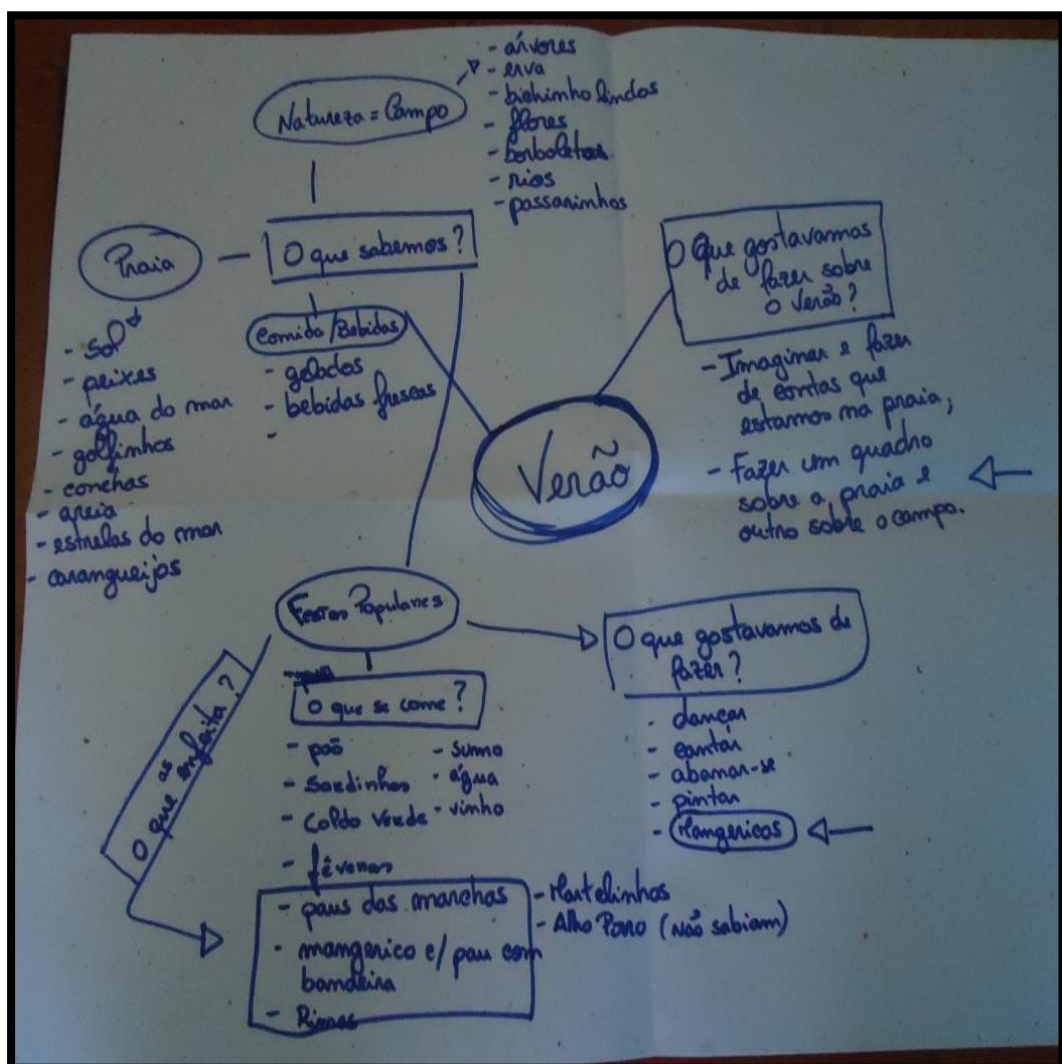 Natureza = Campo
- árvores
- erva
- bichinho lindos
- flores
- borboletas
- rios
- passarinhos
O que sabemos?
Praia
- sol
- peixes
- água do mar
- golfinhos
- conchas
- areia
- estrelas do mar
- carangueijos
Comida/Bebidas
- gelados
- bebidas fuscas
-
Verão
O que gostavamos
de fazer sobre
o Verão?
- Imaginar e fazer
de contas que
estamos na praia;
- Fazer um quadro
sobre a praia e
outro sobre o campo.
Festas Populares
O que as enfeita?
O que se come?
- pão
- Sardinhas
- Caldo Verde
- sumo
- água
- vinho
-
- paus das marchas
- mangerico c/ pau com
bandeira
- Rimas
- Martelinhos
- Alho Porro (não sabiam)
O que gostavamos de
fazer?
- dançar
- cantar
- abanar-se
- pintar
- Mangericos